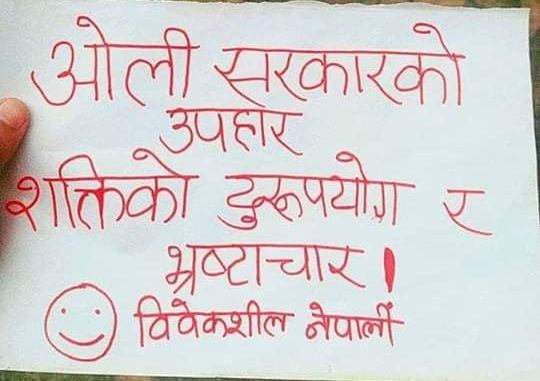 ओली सरकारको
उपहार
शक्तिको दुरूपयोग र
भ्रष्टाचार ।
विवेकशील नेपाली